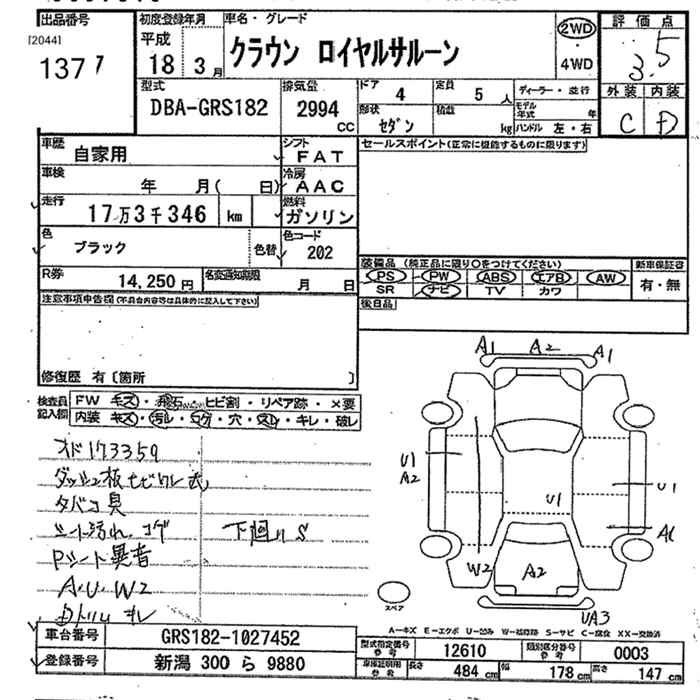 出品番号 初度登録年月 車名・グレード 評価点
[2044] 平成 クラウン ロイヤルサルーン 2WD 3.5
1377 18年 3月 4WD
型式 排気量 ドア 4 定員 5人 ディーラー・並行 外装 内装
DBA-GRS182 2994 CC 形状 セダン 積載 kg モデル年式 年 C D
ハンドル 左・右
車歴 自家用 シフト FAT セールスポイント(正常に機能するものに限ります)
車検 年 月( 日) 冷房 AAC
走行 17万3千346 km 燃料 ガソリン
色 ブラック 色替 色コード 202
装備品 (純正品に限り○をつけてください) 新車保証書
R券 14,250円 名変通知期限 月 日 PS PW ABS エアB AW 有・無
SR ナビ TV カワ
注意事項申告欄(不具合内容等は具体的に記入して下さい) 後日品
修復歴 有 [箇所 ]
検査員記入欄 FW キズ・飛石・ヒビ割・リペア跡・×要
内装 キズ・汚レ・コゲ・穴・スレ・キレ・破レ
A1 A2 A1
オド173359
ダッシュ板
タバコ臭
シート汚れ、コゲ 下廻りS
Pシート異音
A.U.W2
U1
A2
U1
U1
W2
A2
UA3
スペア
A-キズ E-エクボ U-凹み W-補修跡 S-サビ C-腐食 XX-交換済
車台番号 GRS182-1027452 型式指定番号 参考 12610 類別区分番号 参考 0003
登録番号 新潟 300 ら 9880 車庫証明用 参考 長さ 484 cm 幅 178 cm 高さ 147 cm